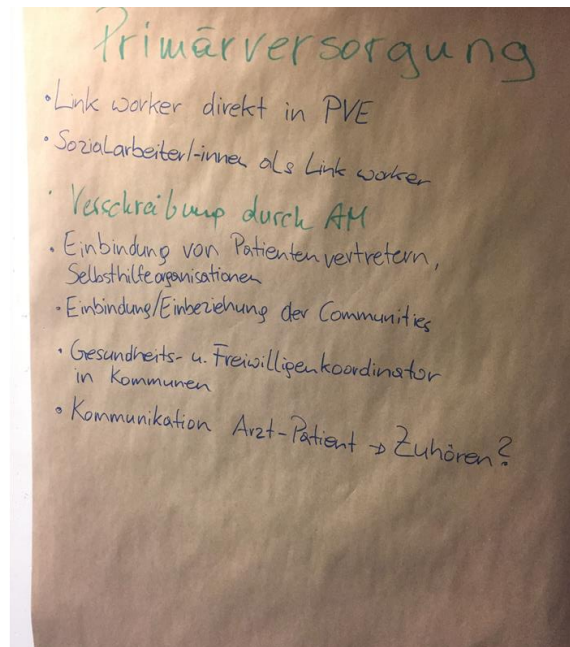 Primärversorgung
• Link worker direkt in PVE
• Sozialarbeiter/-innen als Link worker
• Verschreibung durch AM
• Einbindung von Patientenvertretern,
Selbsthilfeorganisationen
• Einbindung/Einbeziehung der Communities
• Gesundheits- u. Freiwilligenkoordinator
in Kommunen
• Kommunikation Arzt-Patient → Zuhören?